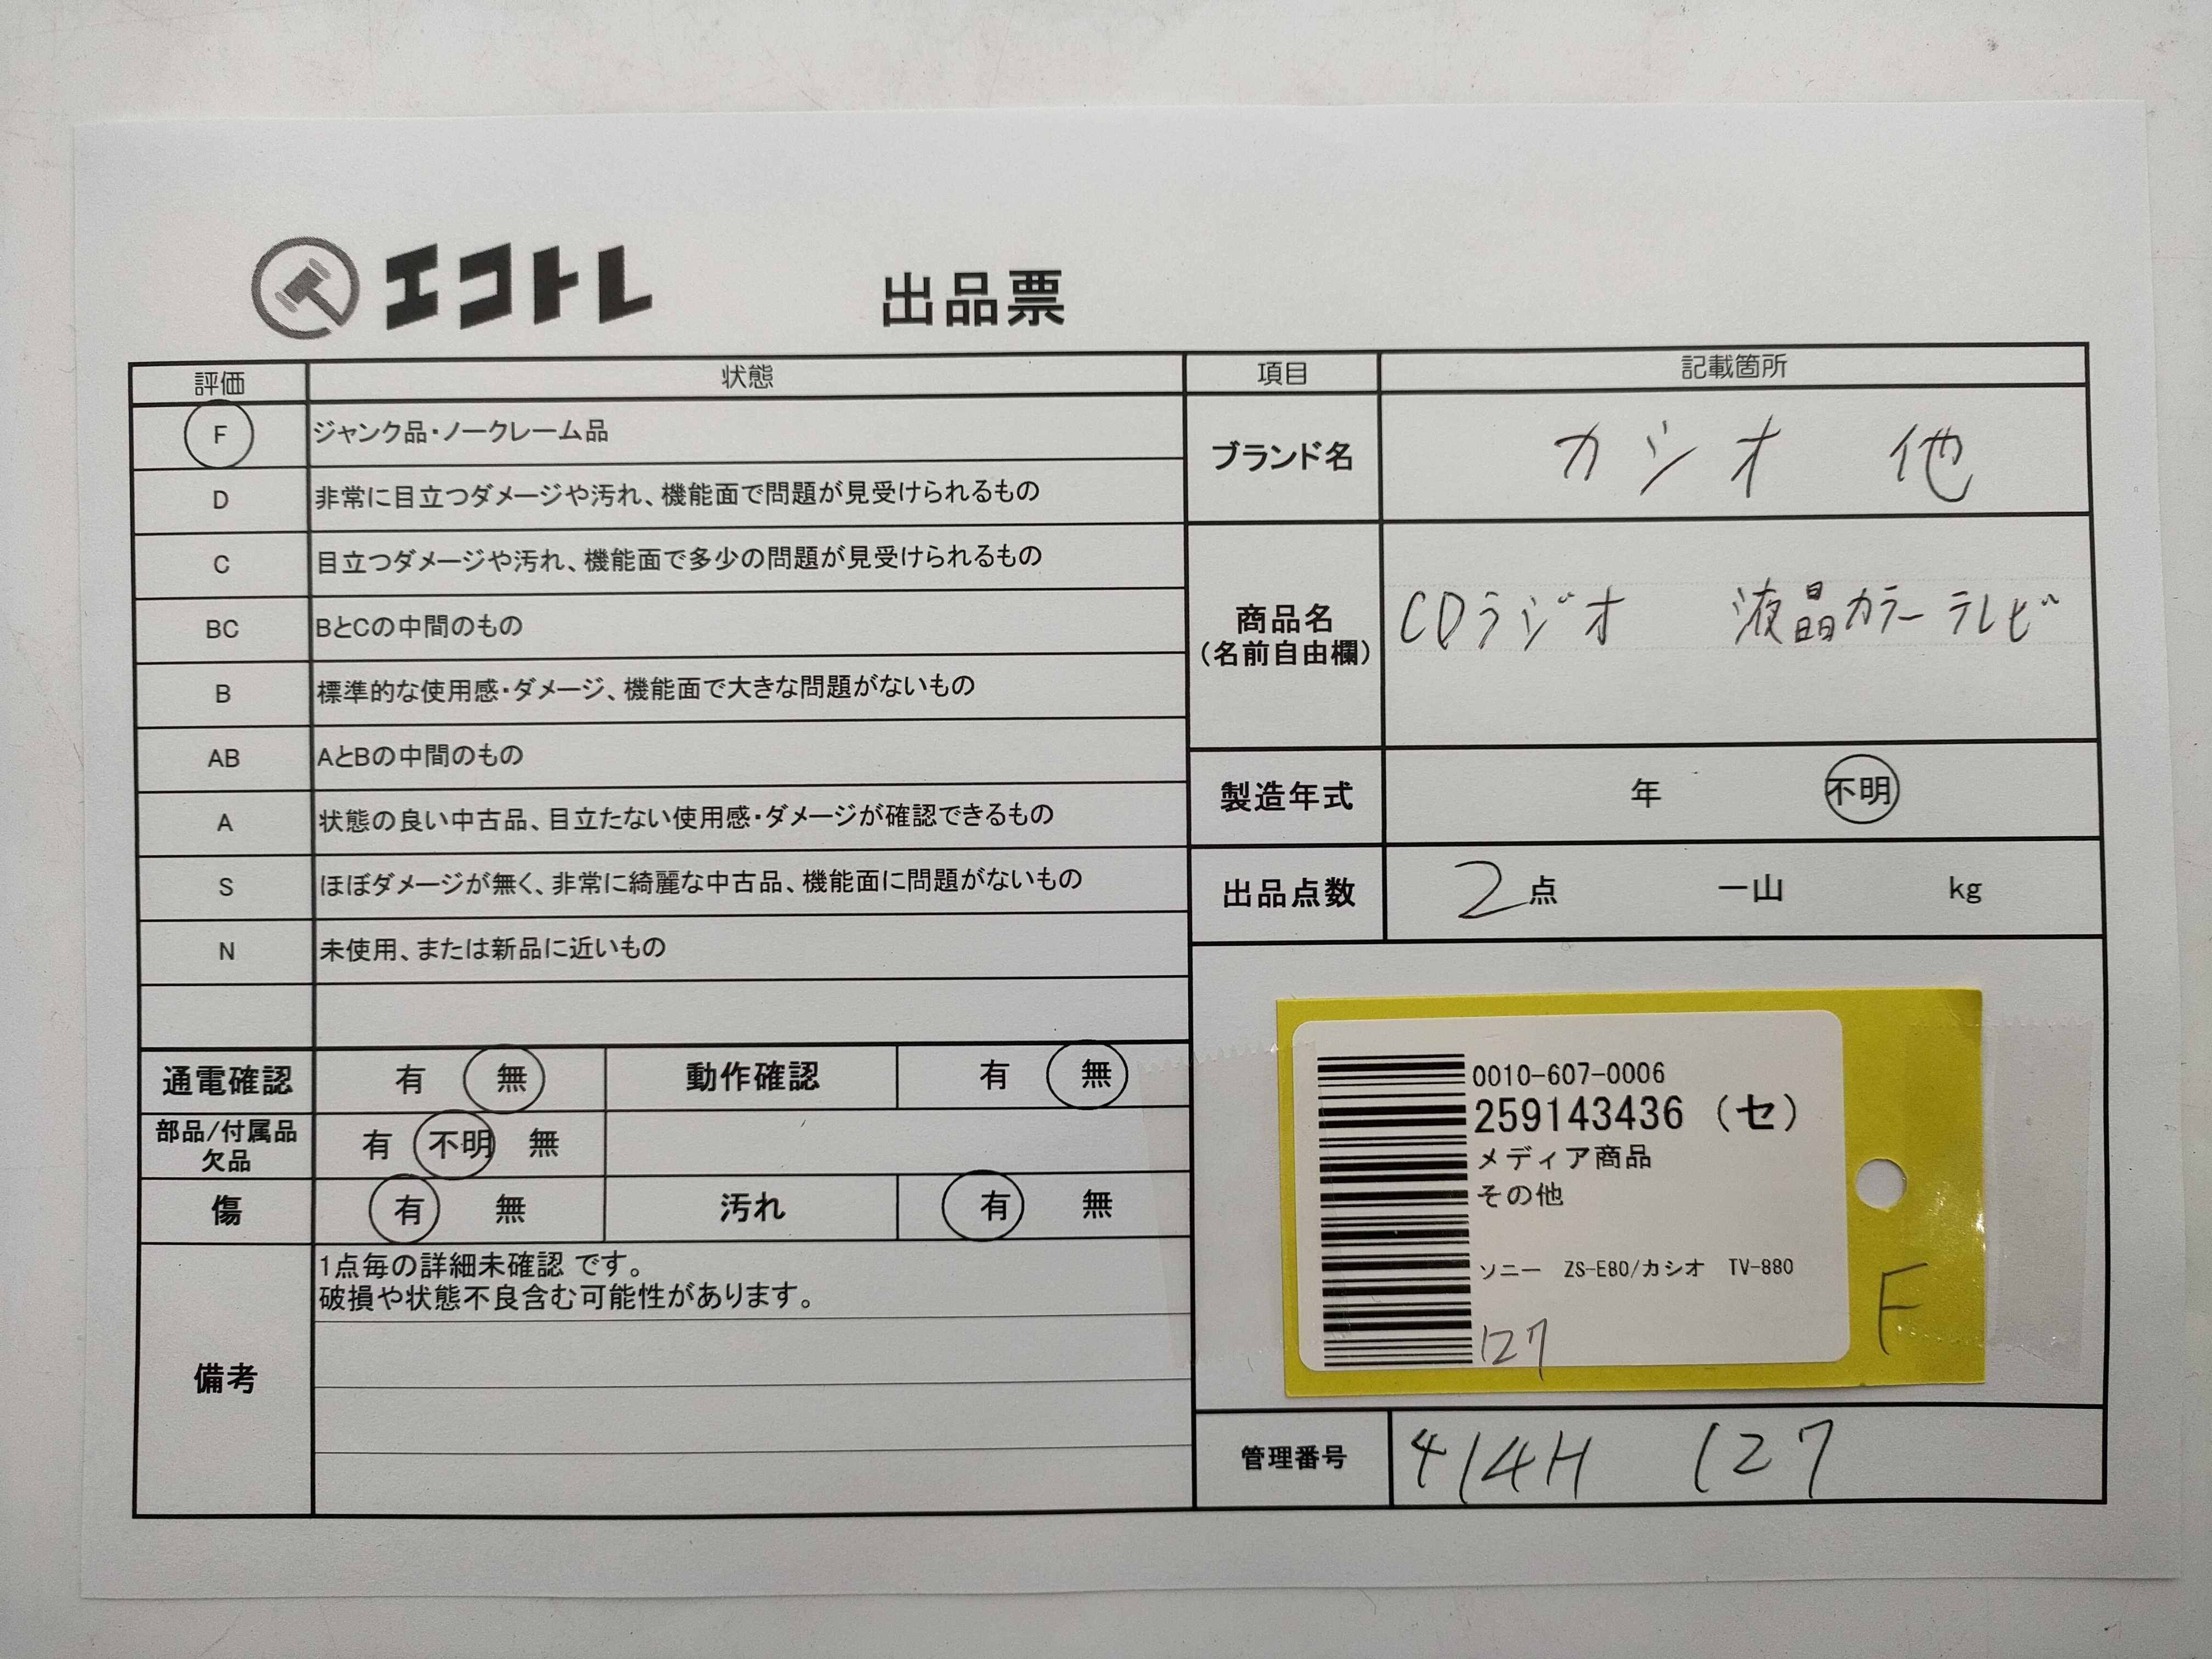 エコトレ
出品票
評価 状態
F ジャンク品・ノークレーム品
D 非常に目立つダメージや汚れ、機能面で問題が見受けられるもの
C 目立つダメージや汚れ、機能面で多少の問題が見受けられるもの
BC BとCの中間のもの
B 標準的な使用感・ダメージ、機能面で大きな問題がないもの
AB AとBの中間のもの
A 状態の良い中古品、目立たない使用感・ダメージが確認できるもの
S ほぼダメージが無く、非常に綺麗な中古品、機能面に問題がないもの
N 未使用、または新品に近いもの
通電確認 有 無 動作確認 有 無
部品/付属品
欠品 有 不明 無
傷 有 無 汚れ 有 無
備考
1点毎の詳細未確認 です。
破損や状態不良含む可能性があります。
項目 記載箇所
ブランド名 カシオ 他
商品名
(名前自由欄)
CDラジオ 液晶カラーテレビ
製造年式 年 不明
出品点数 2点 一山 kg
0010-607-0006
259143436 (セ)
メディア商品
その他
ソニー ZS-E80/カシオ TV-880
127
F
管理番号 414H 127